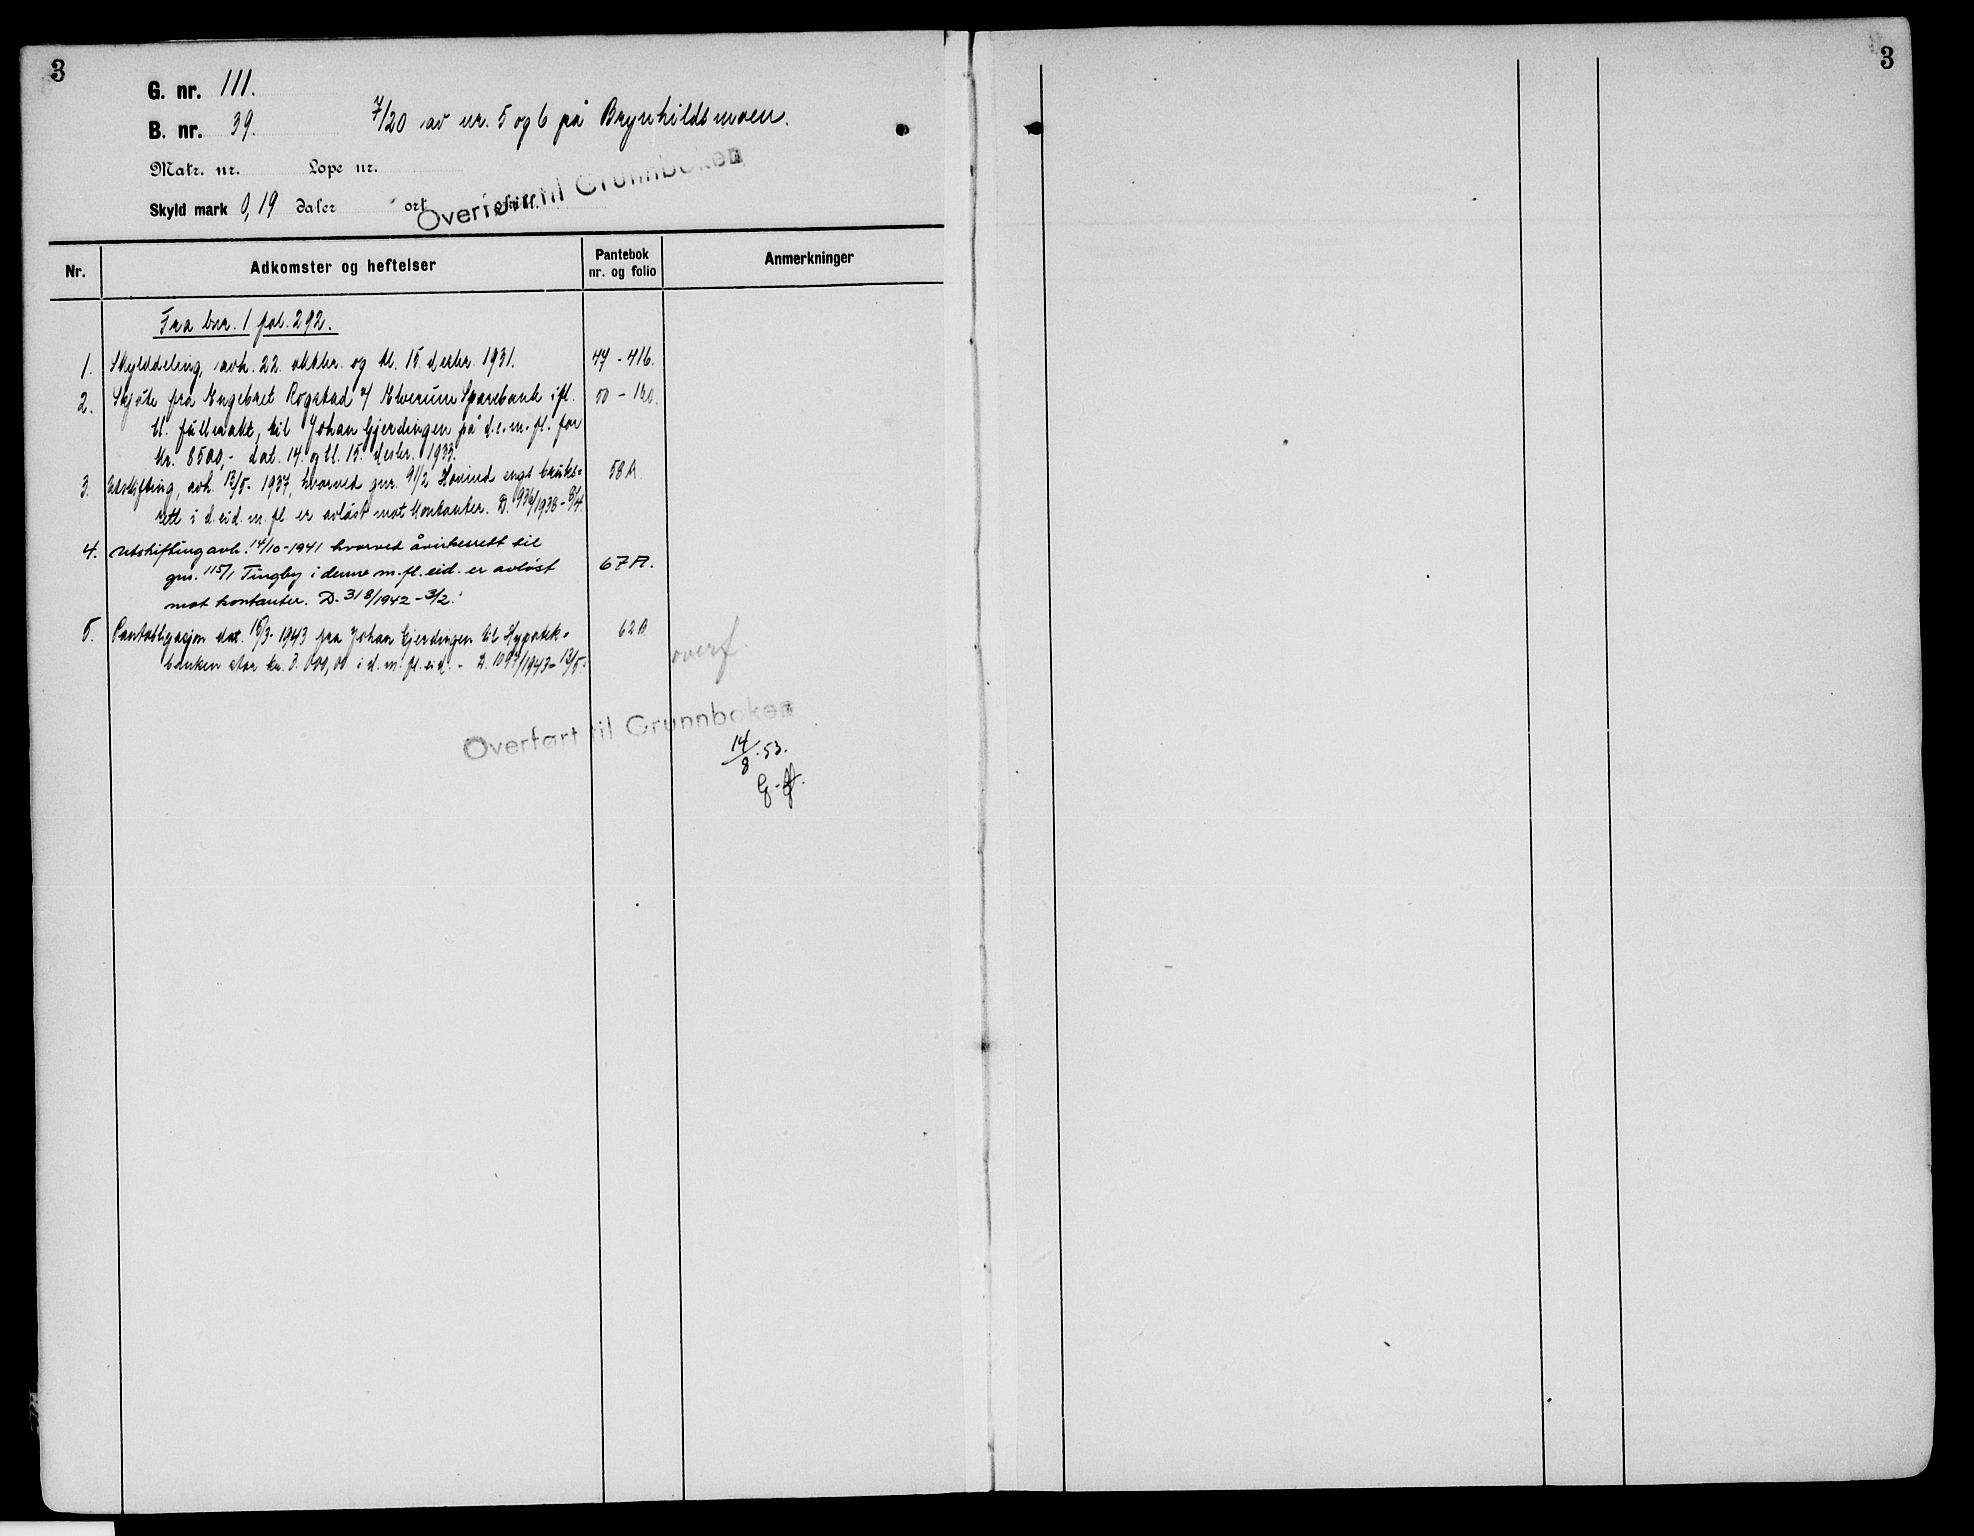 3
3
G. nr. 111.
B. nr. 39. 7/20 av nr. 5 og 6 på Brynhildsmoen.
Matr. nr. Lope nr.
Skyld mark 0,19 daler ort skill.
Overført til Grunnboken
Nr. Adkomster og heftelser Pantebok nr. og folio Anmerkninger
Fra bnr. 1 fol. 292.
1. Skylddeling, avh. 22. oktbr. og tl. 15. desbr. 1931. 47 - 416.
2. Skjøte fra Engebret Rogstad v/ Elverum Sparebank ifl. 50 -
tl. fullmakt, til Johan Gjerdingen på d.e.m.fl. for
kr. 8500,- dat. 14. og tl. 15. desbr. 1933.
3. Utskifting, avh. 12/5- 1937, hvorved gnr. 91/2 Hovind engs bruks- 58A.
rett i d. eid. m. fl. er avløst mot kontanter. D. 936/1938 - 8/4.
4. Utskifting avh. 14/10-1941 hvorved åvirkesrett til
gnr. 115/1 Tingby i denne m.fl. eid. er avløst 67A.
mot kontanter. D. 318/1942 - 3/2.
5. Pantobligasjon dat. 16/3- 1943 fra Johan Gjerdingen til Hypotek-
banken stor kr. 3.000,00 i d. m. fl. eid. - D. 1097/1943 - 13/5.
overf.
Overført til Grunnboken
14/8.53.